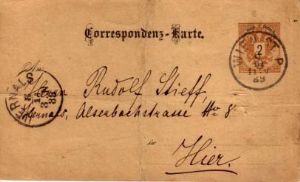 Correspondenz-Karte.
2
WIEN
HERNALS
Herrn Rudolf Stieff,
Hernals, Alsbachstrasse No 8
Hier.